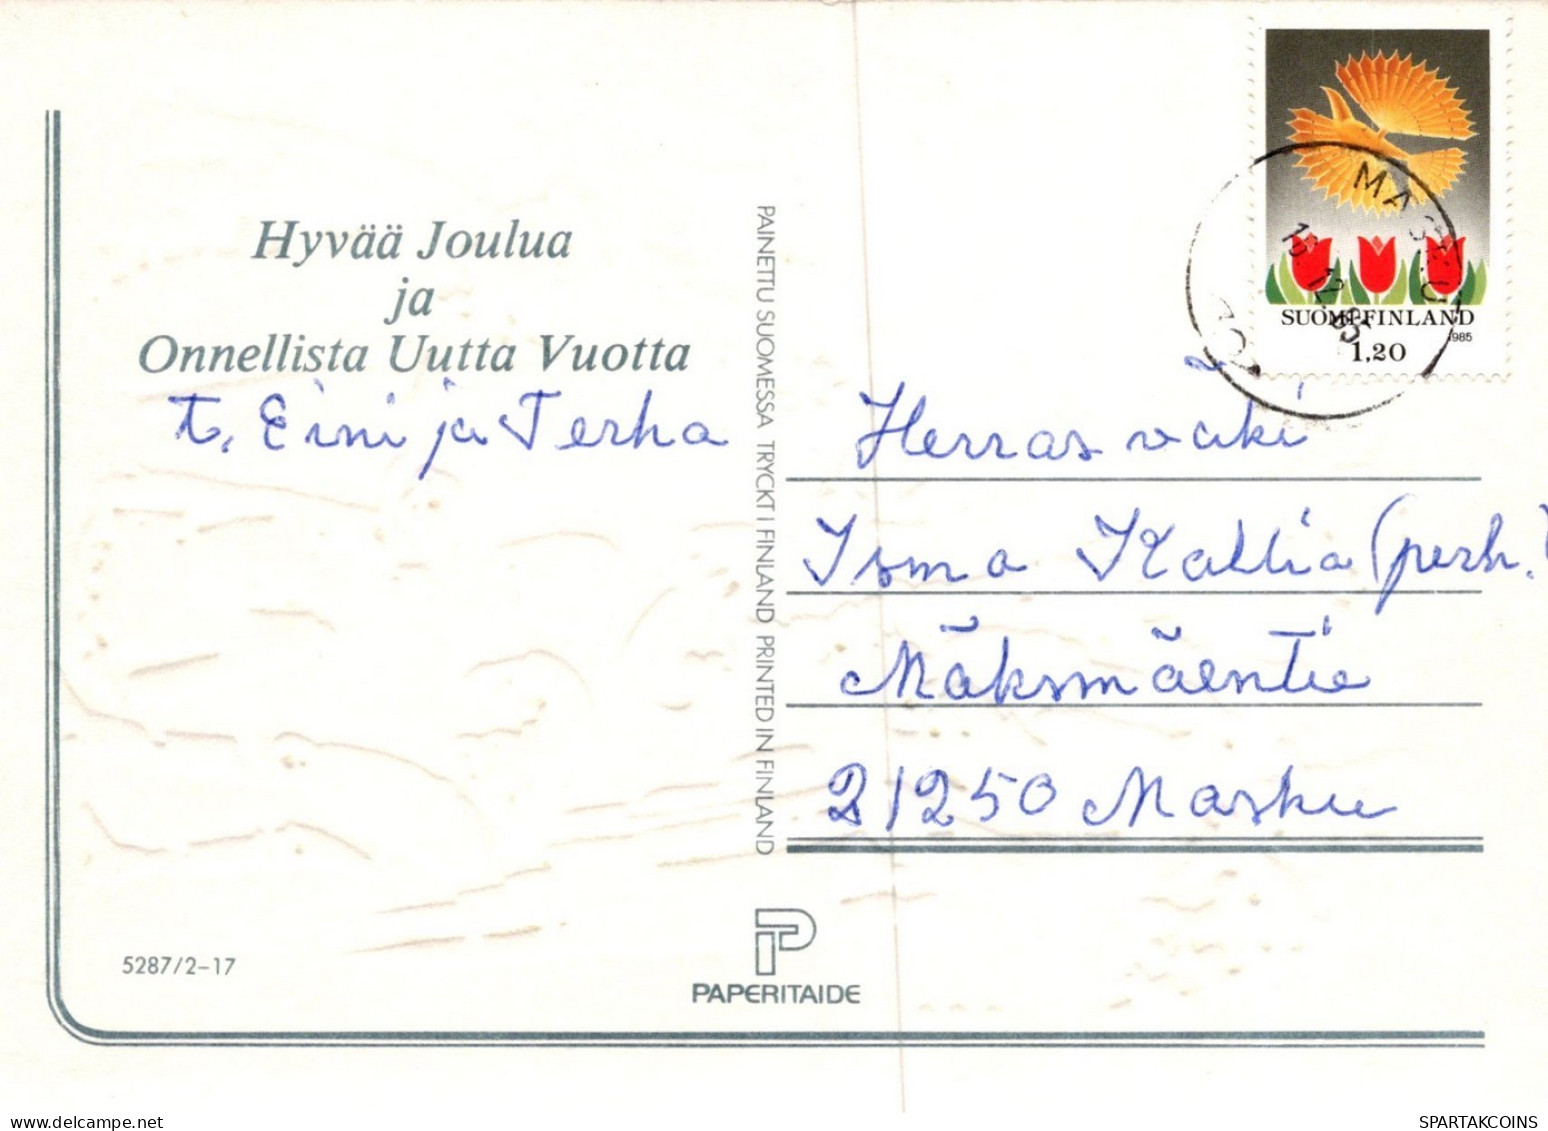 Hyvää Joulua
ja
Onnellista Uutta Vuotta
t. Eini ja Terha
PAINETTU SUOMESSA TRYCKT I FINLAND PRINTED IN FINLAND
SUOMI-FINLAND
1985
1,20
MASKU
12.85
Herrasväki
Isma Kallia (perh.)
Mäksmäentie
21250 Masku
5287/2-17
PAPERITAIDE
delcampe.net
SPARTAKCOINS